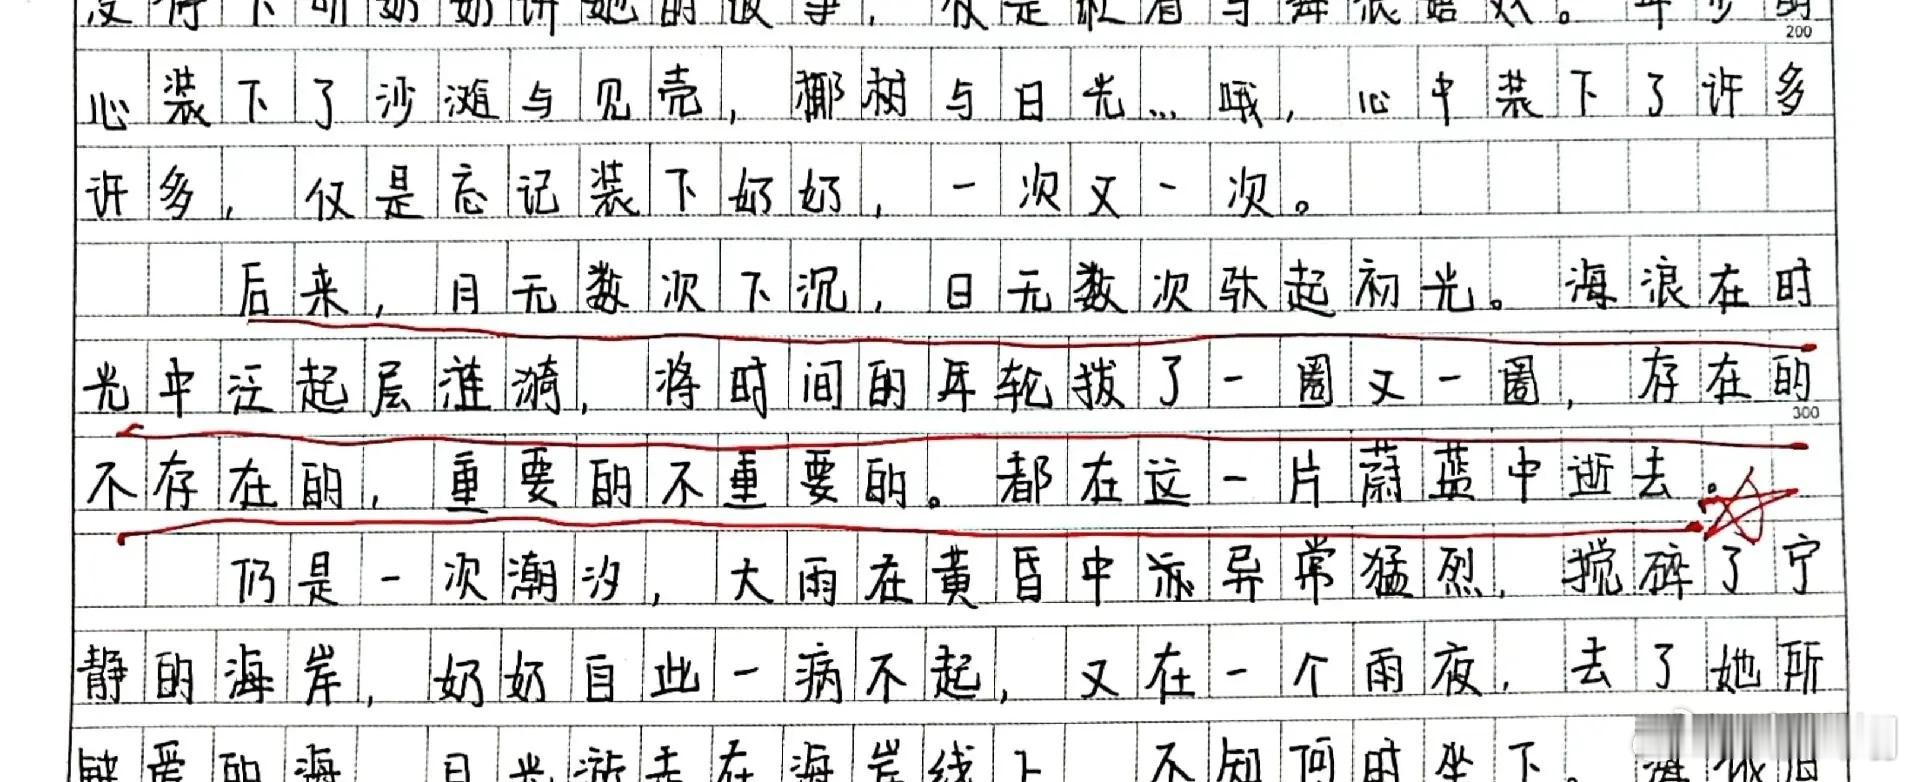 200
心装下了沙滩与见壳，椰树与日光…哦，心中装下了许多
许多，仅是忘记装下奶奶，一次又一次。
后来，月无数次下沉，日无数次跃起初光。海浪在时
光中泛起层涟漪，将时间的年轮拨了一圈又一圈，存在的
300
不存在的，重要的不重要的。都在这一片蔚蓝中逝去。
仍是一次潮汐，大雨在黄昏中亦异常猛烈，搅碎了宁
静的海岸，奶奶自此一病不起，又在一个雨夜，去了她所